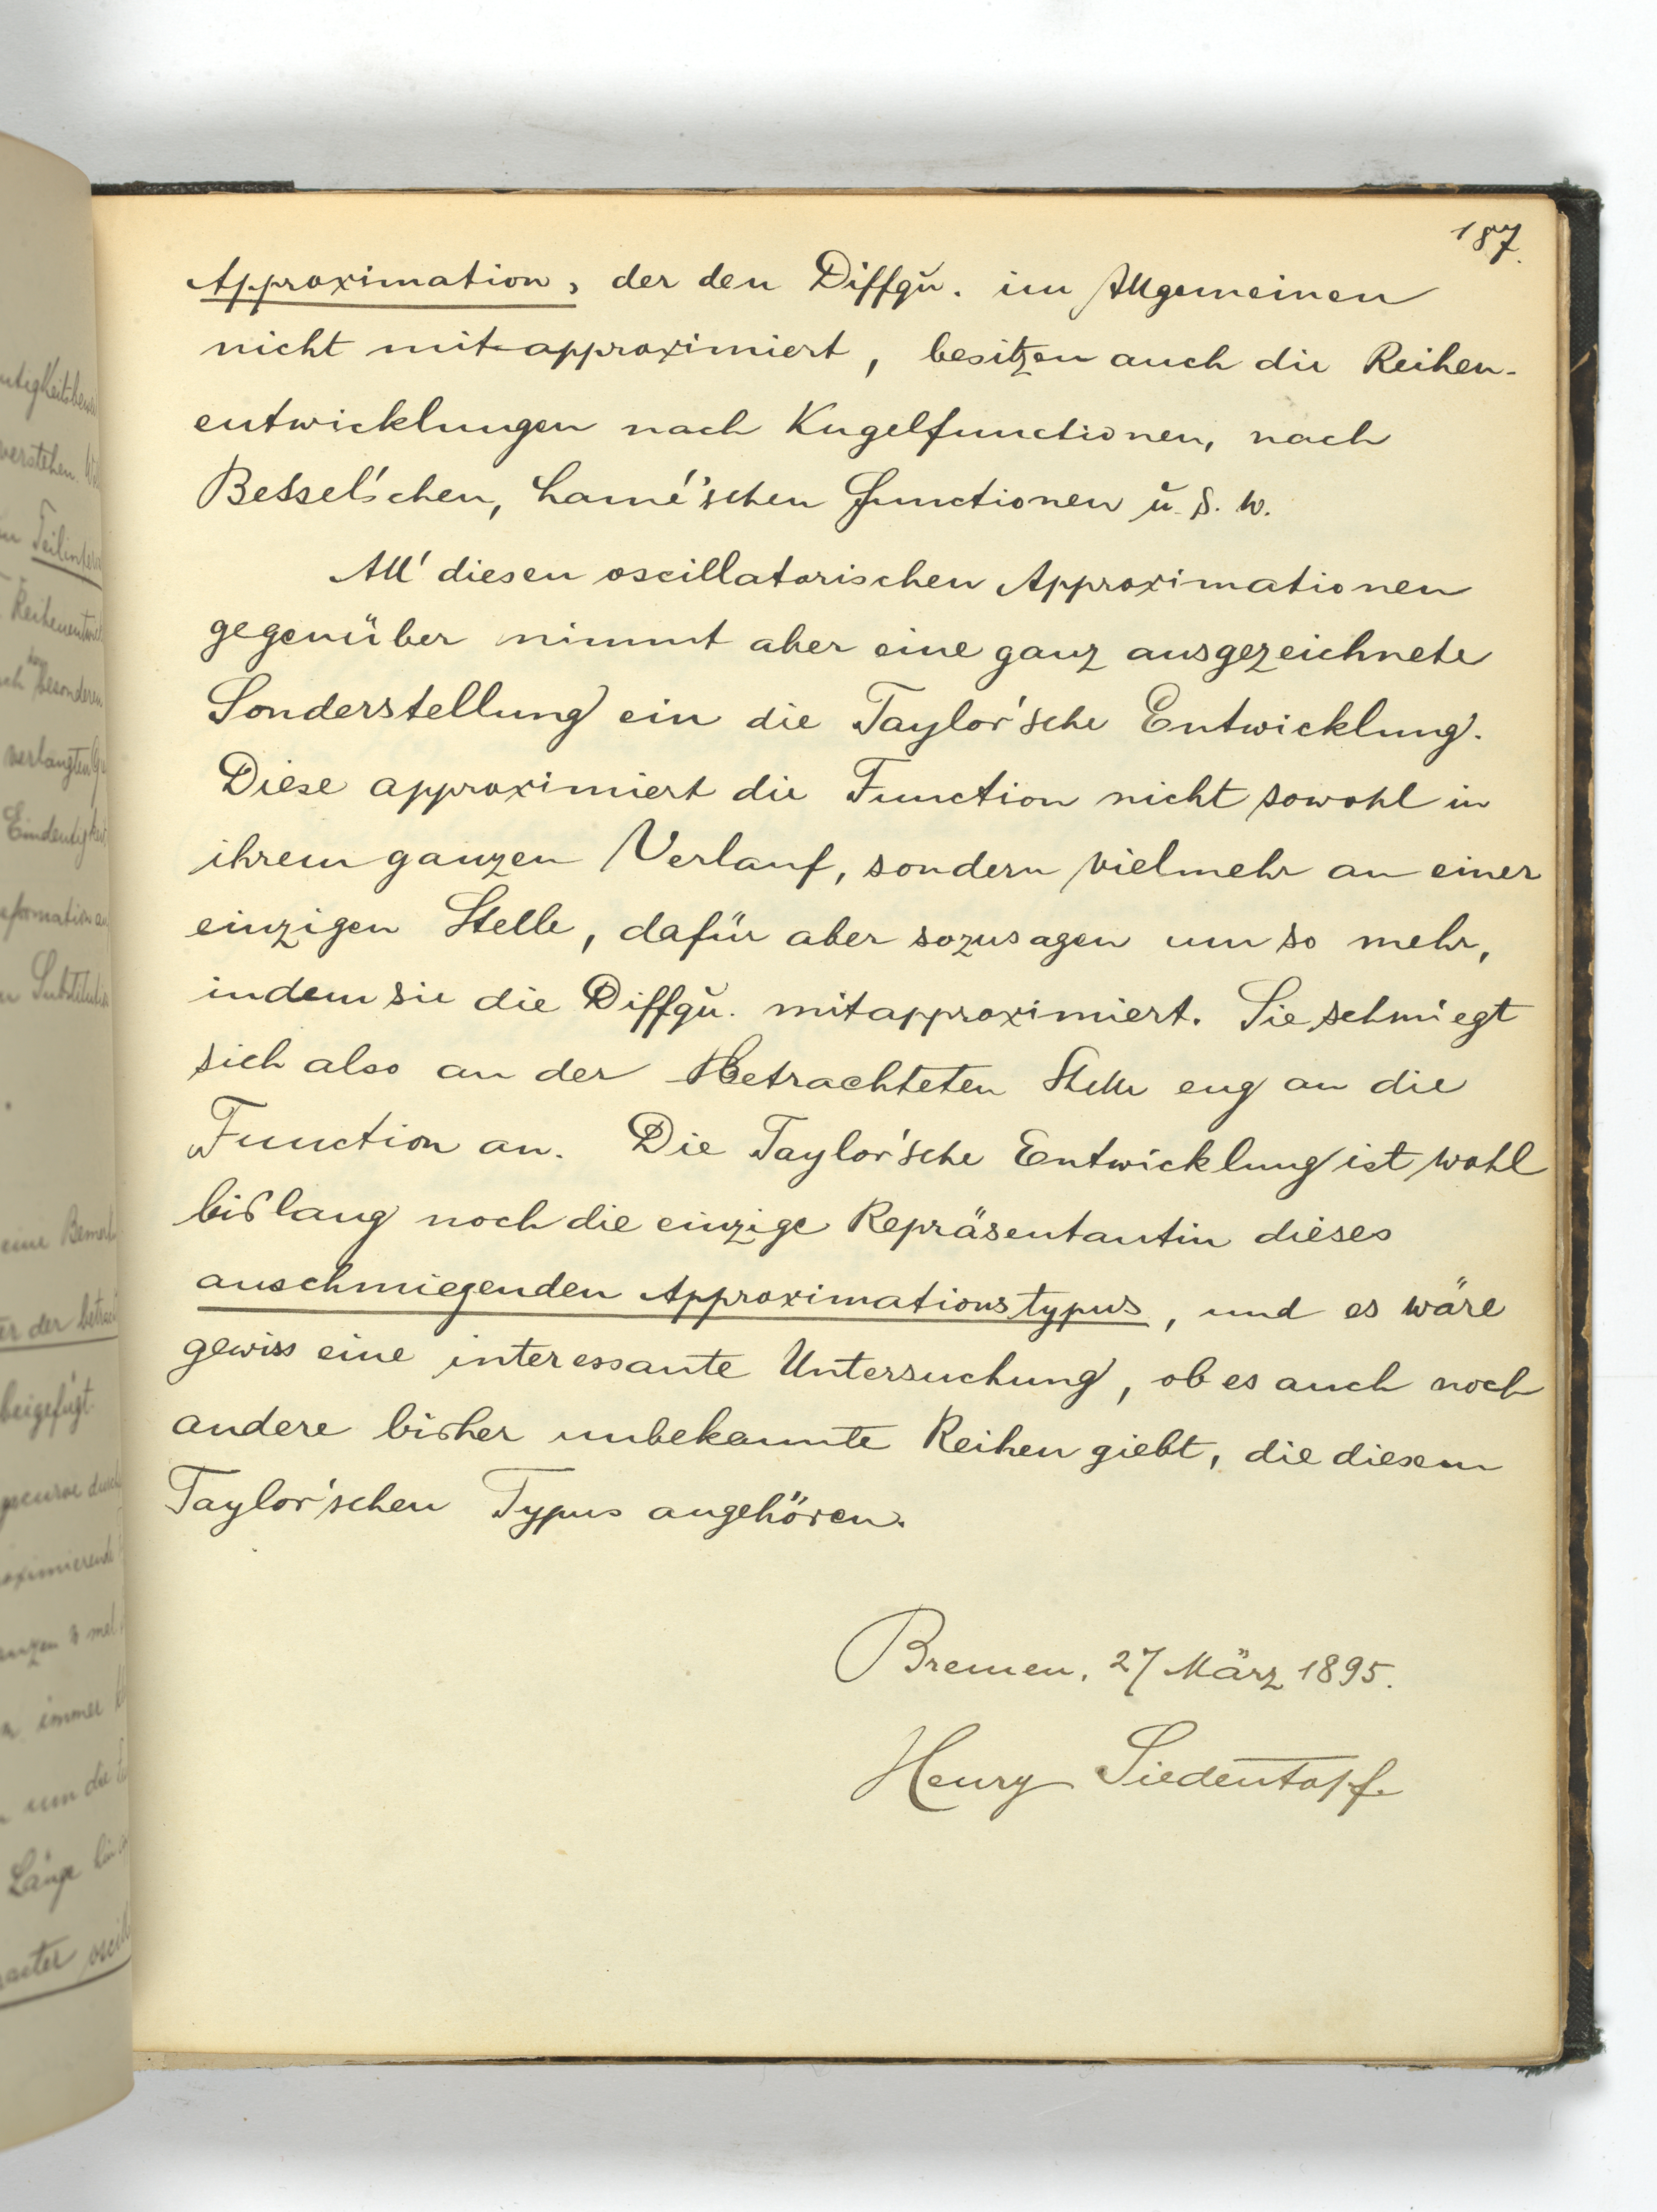 187.
Approximation, der den Diffqu. im Allgemeinen
nicht mit approximiert, besitzen auch die Reihen-
entwicklungen nach Kugelfunctionen, nach
Bessel'schen, Lamé'schen Functionen u. s. w.
All' diesen oscillatorischen Approximationen
gegenüber nimmt aber eine ganz ausgezeichnete
Sonderstellung ein die Taylor'sche Entwicklung.
Diese approximiert die Function nicht sowohl in
ihrem ganzen Verlauf, sondern vielmehr an einer
einzigen Stelle, dafür aber sozusagen um so mehr,
indem sie die Diffqu. mitapproximiert. Sie schmiegt
sich also an der Betrachteten Stelle eng an die
Function an. Die Taylor'sche Entwicklung ist wohl
bislang noch die einzige Repräsentantin dieses
anschmiegenden Approximationstypus, und es wäre
gewiss eine interessante Untersuchung, ob es auch noch
andere bisher unbekannte Reihen giebt, die diesem
Taylor'schen Typus angehören.
Bremen, 27 März 1895.
Henry Siedentopf.